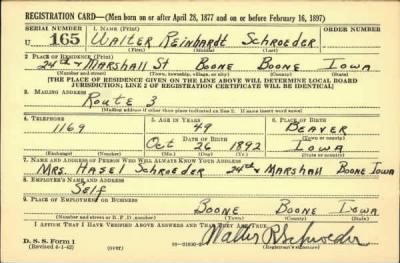 REGISTRATION CARD—(Men born on or after April 28, 1877 and on or before February 16, 1897)
SERIAL NUMBER 1. NAME (Print) ORDER NUMBER
U 165 Walter Reinhardt Schroeder
(First) (Middle) (Last)
2. PLACE OF RESIDENCE (Print)
24th & Marshall St Boone Boone Iowa
(Number and street) (Town, township, village, or city) (County) (State)
[THE PLACE OF RESIDENCE GIVEN ON THE LINE ABOVE WILL DETERMINE LOCAL BOARD
JURISDICTION; LINE 2 OF REGISTRATION CERTIFICATE WILL BE IDENTICAL]
3. MAILING ADDRESS
Route 3
[Mailing address if other than place indicated on line 2. If same insert word same]
4. TELEPHONE 5. AGE IN YEARS 6. PLACE OF BIRTH
1169 49 Beaver
DATE OF BIRTH (Town or county)
Oct 26 1892 Iowa
(Exchange) (Number) (Mo.) (Day) (Yr.) (State or country)
7. NAME AND ADDRESS OF PERSON WHO WILL ALWAYS KNOW YOUR ADDRESS
Mrs. Hasel Schroeder 24th & Marshall Boone Iowa
8. EMPLOYER'S NAME AND ADDRESS
Self
9. PLACE OF EMPLOYMENT OR BUSINESS
Boone Boone Iowa
(Number and street or R. F. D. number) (Town) (County) (State)
I AFFIRM THAT I HAVE VERIFIED ABOVE ANSWERS AND THAT THEY ARE TRUE.
D. S. S. Form 1
(Revised 4-1-42) (over) Walter R Schroeder